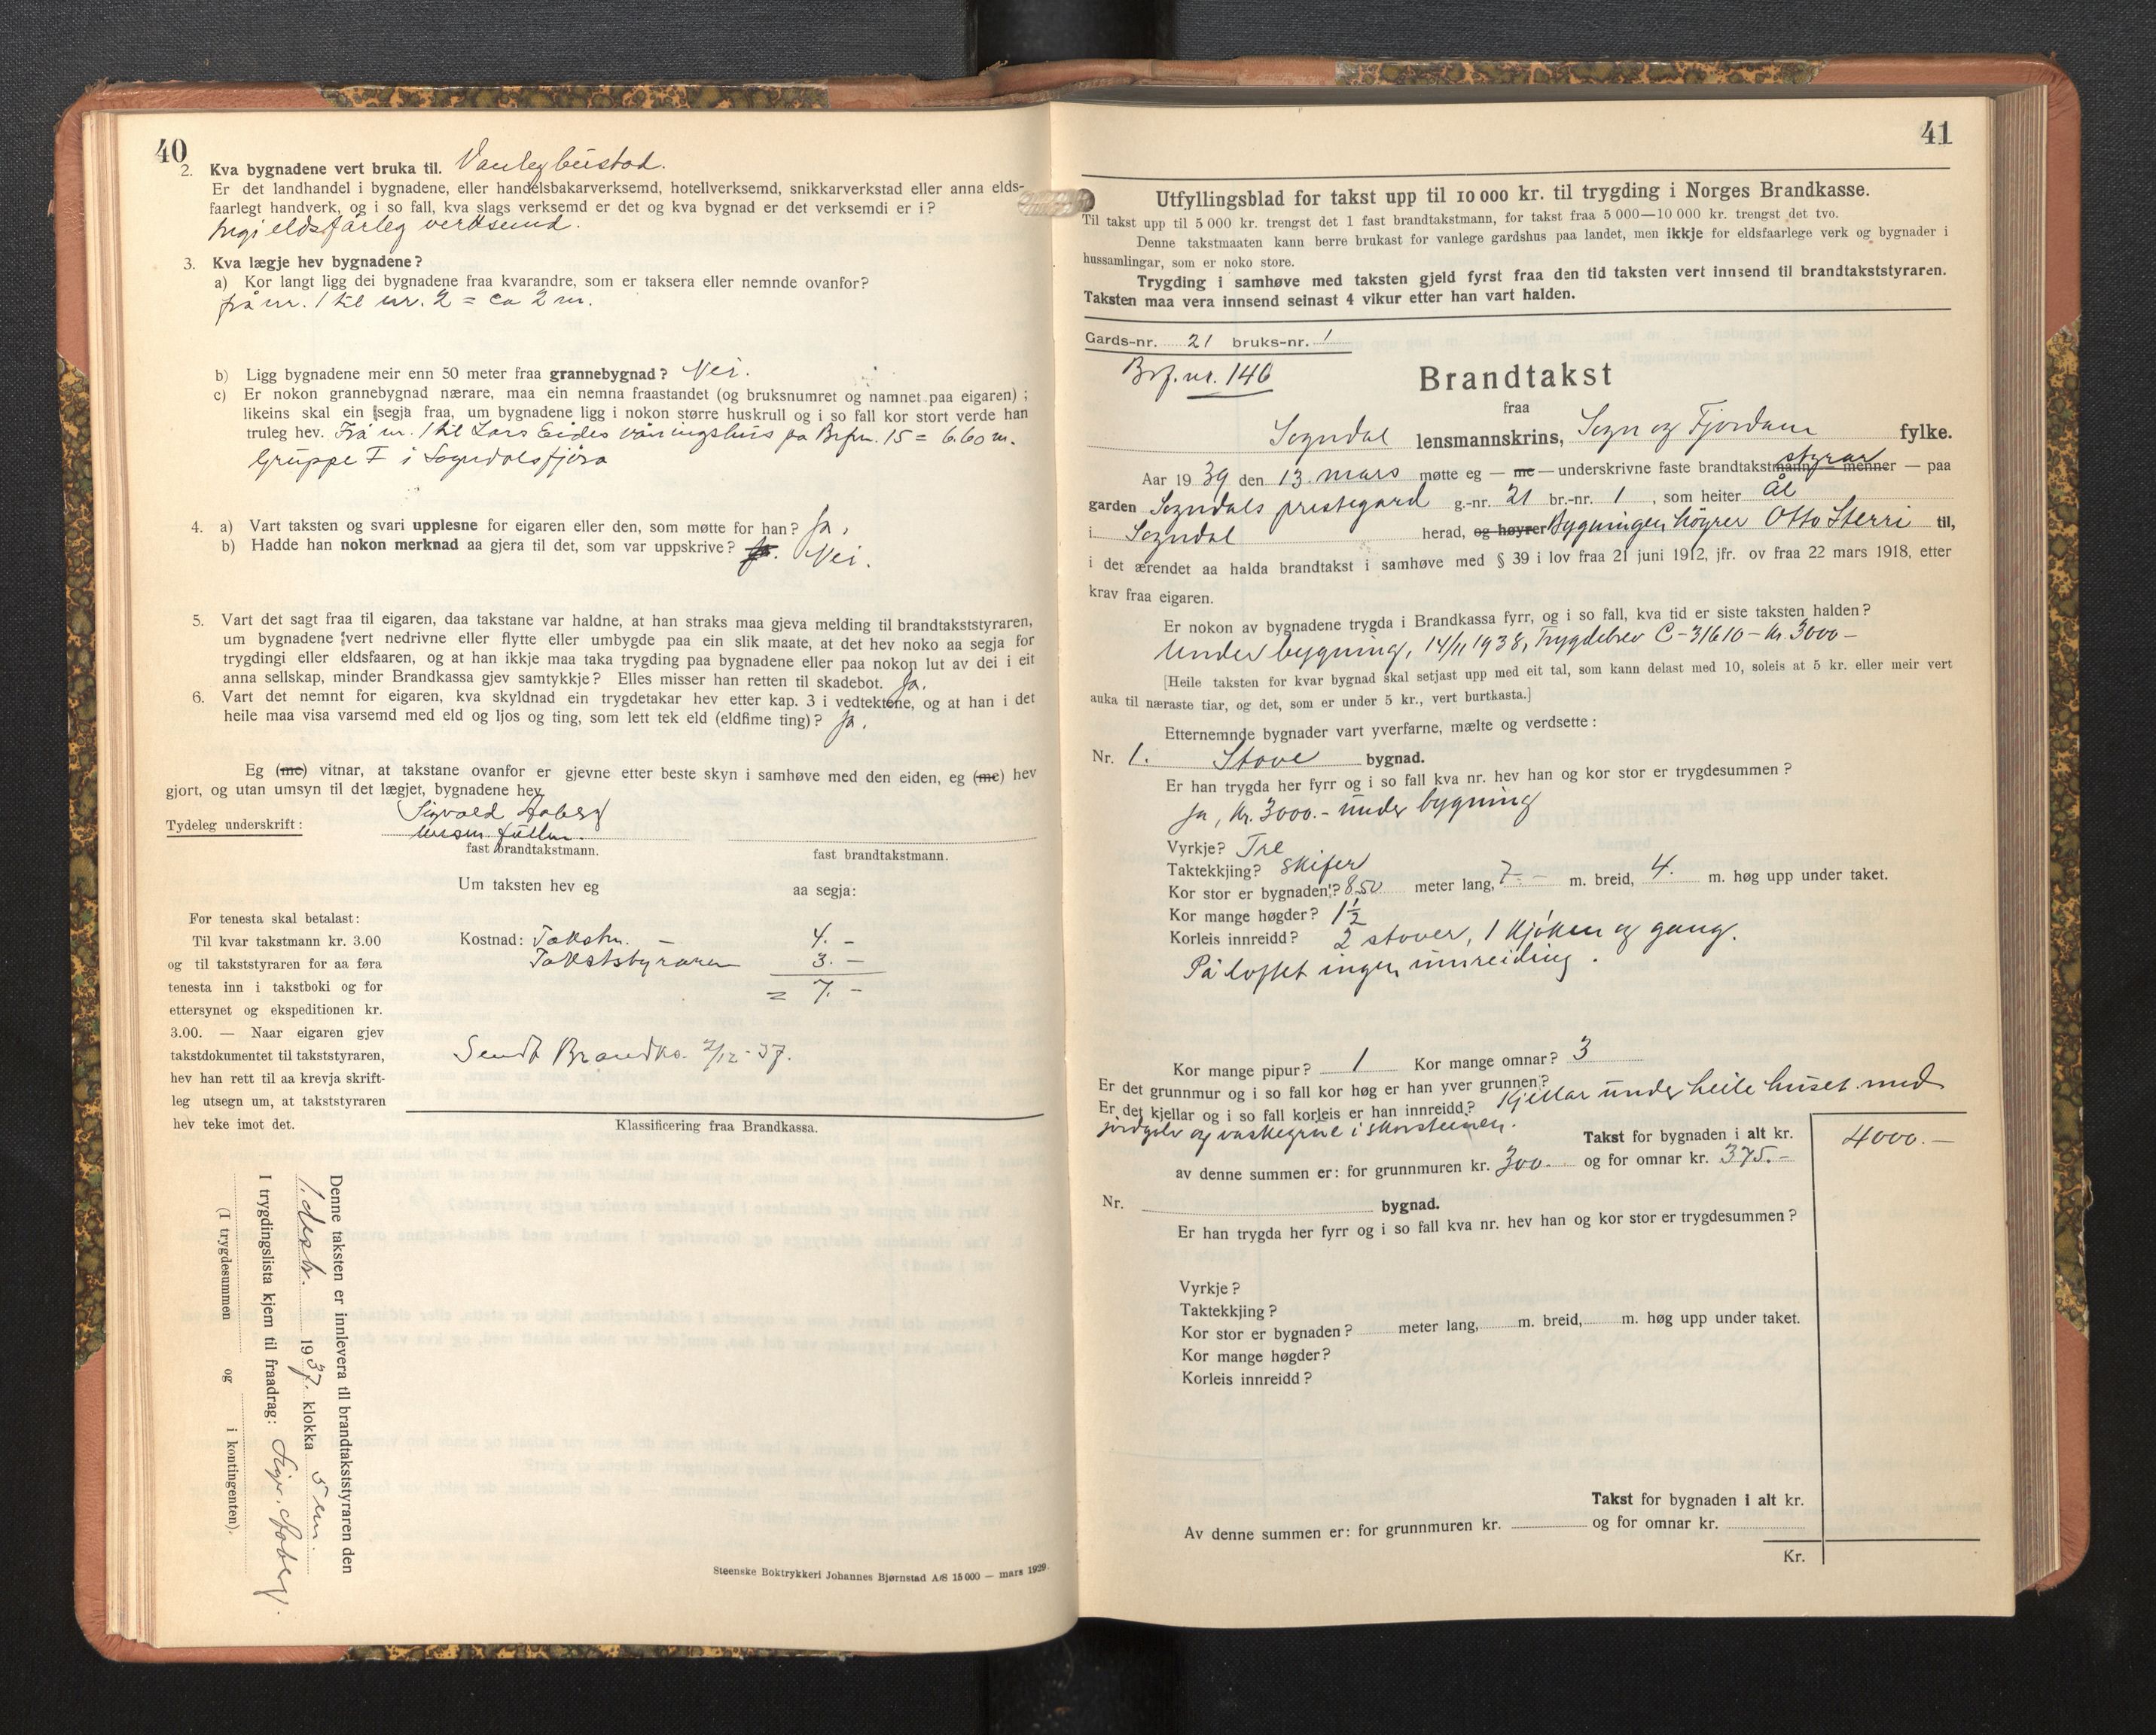 40
2. Kva bygnadene vert bruka til. Vanleg bustad.
Er det landhandel i bygnadene, eller handelsbakarverksemd, hotellverksemd, snikkarverkstad eller anna elds-
faarlegt handverk, og i so fall, kva slags verksemd er det og kva bygnad er det verksemdi er i?
Ingi eldsfårleg verksemd.
3. Kva lægje hev bygnadene?
a) Kor langt ligg dei bygnadene fraa kvarandre, som er taksera eller nemnde ovanfor?
frå nr. 1 til nr. 2 = ca 2 m.
b) Ligg bygnadene meir enn 50 meter fraa grannebygnad? Nei.
c) Er nokon grannebygnad nærare, maa ein nemna fraastandet (og bruksnumret og namnet paa eigaren);
likeins skal ein segja fraa, um bygnadene ligg i nokon større huskrull og i so fall kor stort verde han
truleg hev. Frå nr. 1 til Lars Eides våningshus på Brfnr. 15 = 6.60 m.
Gruppe I i Sogndalsfjøra
4. a) Vart taksten og svari upplesne for eigaren eller den, som møtte for han? Ja.
b) Hadde han nokon merknad aa gjera til det, som var uppskrive? Ja. Nei.
5. Vart det sagt fraa til eigaren, daa takstane var haldne, at han straks maa gjeva melding til brandtakststyraren,
um bygnadene vert nedrivne eller flytte eller umbygde paa ein slik maate, at det hev noko aa segja for
trygdingi eller eldsfaaren, og at han ikkje maa taka trygding paa bygnadene eller paa nokon lut av dei i eit
anna sellskap, minder Brandkassa gjev samtykkje? Elles misser han retten til skadebot. Ja.
6. Vart det nemnt for eigaren, kva skyldnad ein trygdetakar hev etter kap. 3 i vedtektene, og at han i det
heile maa visa varsemd med eld og ljos og ting, som lett tek eld (eldfime ting)? Ja.
Eg (me) vitnar, at takstane ovanfor er gjevne etter beste skyn i samhøve med den eiden, eg (me) hev
gjort, og utan umsyn til det lægjet, bygnadene hev.
Tydeleg underskrift: Sigvald Aaberg
lensm. fullm.
fast brandtakstmann. fast brandtakstmann.
Um taksten hev eg aa segja:
For tenesta skal betalast:
Til kvar takstmann kr. 3.00
og til takststyraren for aa føra
tenesta inn i takstboki og for
ettersynet og ekspeditionen kr.
3.00. — Naar eigaren gjev
takstdokumentet til takststyraren,
hev han rett til aa krevja skrift-
leg utsegn um, at takststyraren
hev teke imot det.
Kostnad: Takstm. — 4. -
Takststyraren 3. -
= 7. -
Sendt Brandks. 2/12-37.
Klassificering fraa Brandkassa.
Denne taksten er innlevera til brandtakststyraren den
1. desbr. 1937. klokka 5 em
I trygdingslista kjem til fraadrag: Sigv. Aaberg.
(I trygdesummen og i kontingenten).
Steenske Boktrykkeri Johannes Bjørnstad A/S 15 000 — mars 1929.
41
Utfyllingsblad for takst upp til 10 000 kr. til trygding i Norges Brandkasse.
Til takst upp til 5 000 kr. trengst det 1 fast brandtakstmann, for takst fraa 5 000—10 000 kr. trengst det tvo.
Denne takstmaaten kann berre brukast for vanlege gardshus paa landet, men ikkje for eldsfaarlege verk og bygnader i
hussamlingar, som er noko store.
Trygding i samhøve med taksten gjeld fyrst fraa den tid taksten vert innsend til brandtakststyraren.
Taksten maa vera innsend seinast 4 vikur etter han vart halden.
Gards-nr. 21 bruks-nr. 1
Brf. nr. 146
Brandtakst
fraa
Sogndal lensmannskrins, Sogn og Fjordane fylke.
styrar
Aar 1939 den 13. mars møtte eg — me — underskrivne faste brandtakstmann — menner — paa
garden Sogndals prestegard g.-nr. 21 br.-nr. 1, som heiter Ål
i Sogndal herad, og høyrer Bygningen høyrer Otto Sterri til,
i det ærendet aa halda brandtakst i samhøve med § 39 i lov fraa 21 juni 1912, jfr. ov fraa 22 mars 1918, etter
krav fraa eigaren.
Er nokon av bygnadene trygda i Brandkassa fyrr, og i so fall, kva tid er siste taksten halden?
Under bygning, 14/11 1938, Trygdebrev C-31610 - kr. 3000 -
[Heile taksten for kvar bygnad skal setjast upp med eit tal, som kann delast med 10, soleis at 5 kr. eller meir vert
auka til næraste tiar, og det, som er under 5 kr., vert burtkasta.]
Etternemnde bygnader vart yverfarne, mælte og verdsette:
Nr. 1. Stove bygnad.
Er han trygda her fyrr og i so fall kva nr. hev han og kor stor er trygdesummen?
Ja, kr. 3000.- under bygning
Vyrkje? Tre
Taktekkjing? Skifer
Kor stor er bygnaden? 8.50 meter lang, 7.- m. breid, 4. m. høg upp under taket.
Kor mange høgder? 1½
Korleis innreidd? 2 stover, 1 kjøken og gang.
På loftet ingen innreiding.
Kor mange pipur? 1 Kor mange omnar? 3
Er det grunnmur og i so fall kor høg er han yver grunnen?
Er det kjellar og i so fall korleis er han innreidd? Kjellar under heile huset med
jordgolv og vaskegrue i skorsteinen.
Takst for bygnaden i alt kr. 4000.—
av denne summen er: for grunnmuren kr. 300.- og for omnar kr. 375.-
Nr. bygnad.
Er han trygda her fyrr og i so fall kva nr. hev han og kor stor er trygdesummen?
Vyrkje?
Taktekkjing?
Kor stor er bygnaden? meter lang, m. breid, m. høg upp under taket.
Kor mange høgder?
Korleis innreidd?
Takst for bygnaden i alt kr.
Av denne summen er: for grunnmuren kr. og for omnar kr.
Kr.